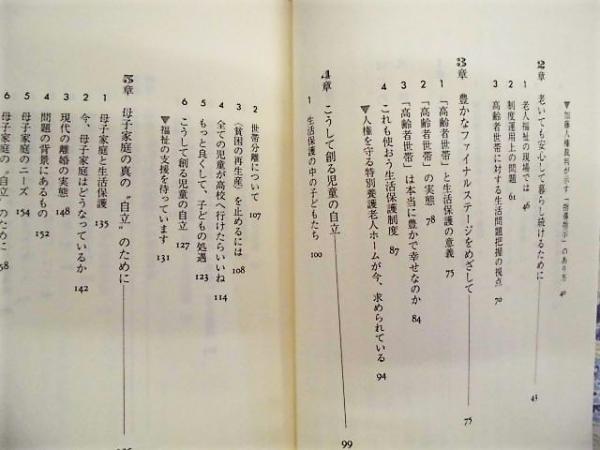 ▼加藤人権裁判が示す「指導指示」のあり方 40
2章 老いても安心して暮らし続けるために 45
1 老人福祉の現場では 46
2 制度運用上の問題 61
3 高齢者世帯に対する生活問題把握の視点 70
3章 豊かなファイナルステージをめざして 75
1 「高齢者世帯」と生活保護の意義 75
2 「高齢者世帯」の実態 78
3 「高齢者世帯」は本当に豊かで幸せなのか 84
4 これも使おう生活保護制度 87
▼人権を守る特別養護老人ホームが今、求められている 94
4章 こうして創る児童の自立 99
1 生活保護の中の子どもたち 100
2 世帯分離について 107
3 〈貧困の再生産〉を止めるには 108
4 全ての児童が高校へ行けたらいいね 114
5 もっと良くして、子どもの処遇 123
6 こうして創る児童の自立 127
▼福祉の支援を待っています 131
5章 母子家庭の真の〝自立〟のために
1 母子家庭と生活保護 135
2 今、母子家庭はどうなっているか 142
3 現代の離婚の実態 148
4 問題の背景にあるもの 152
5 母子家庭のニーズ 154
6 母子家庭の〝自立〟のために 158